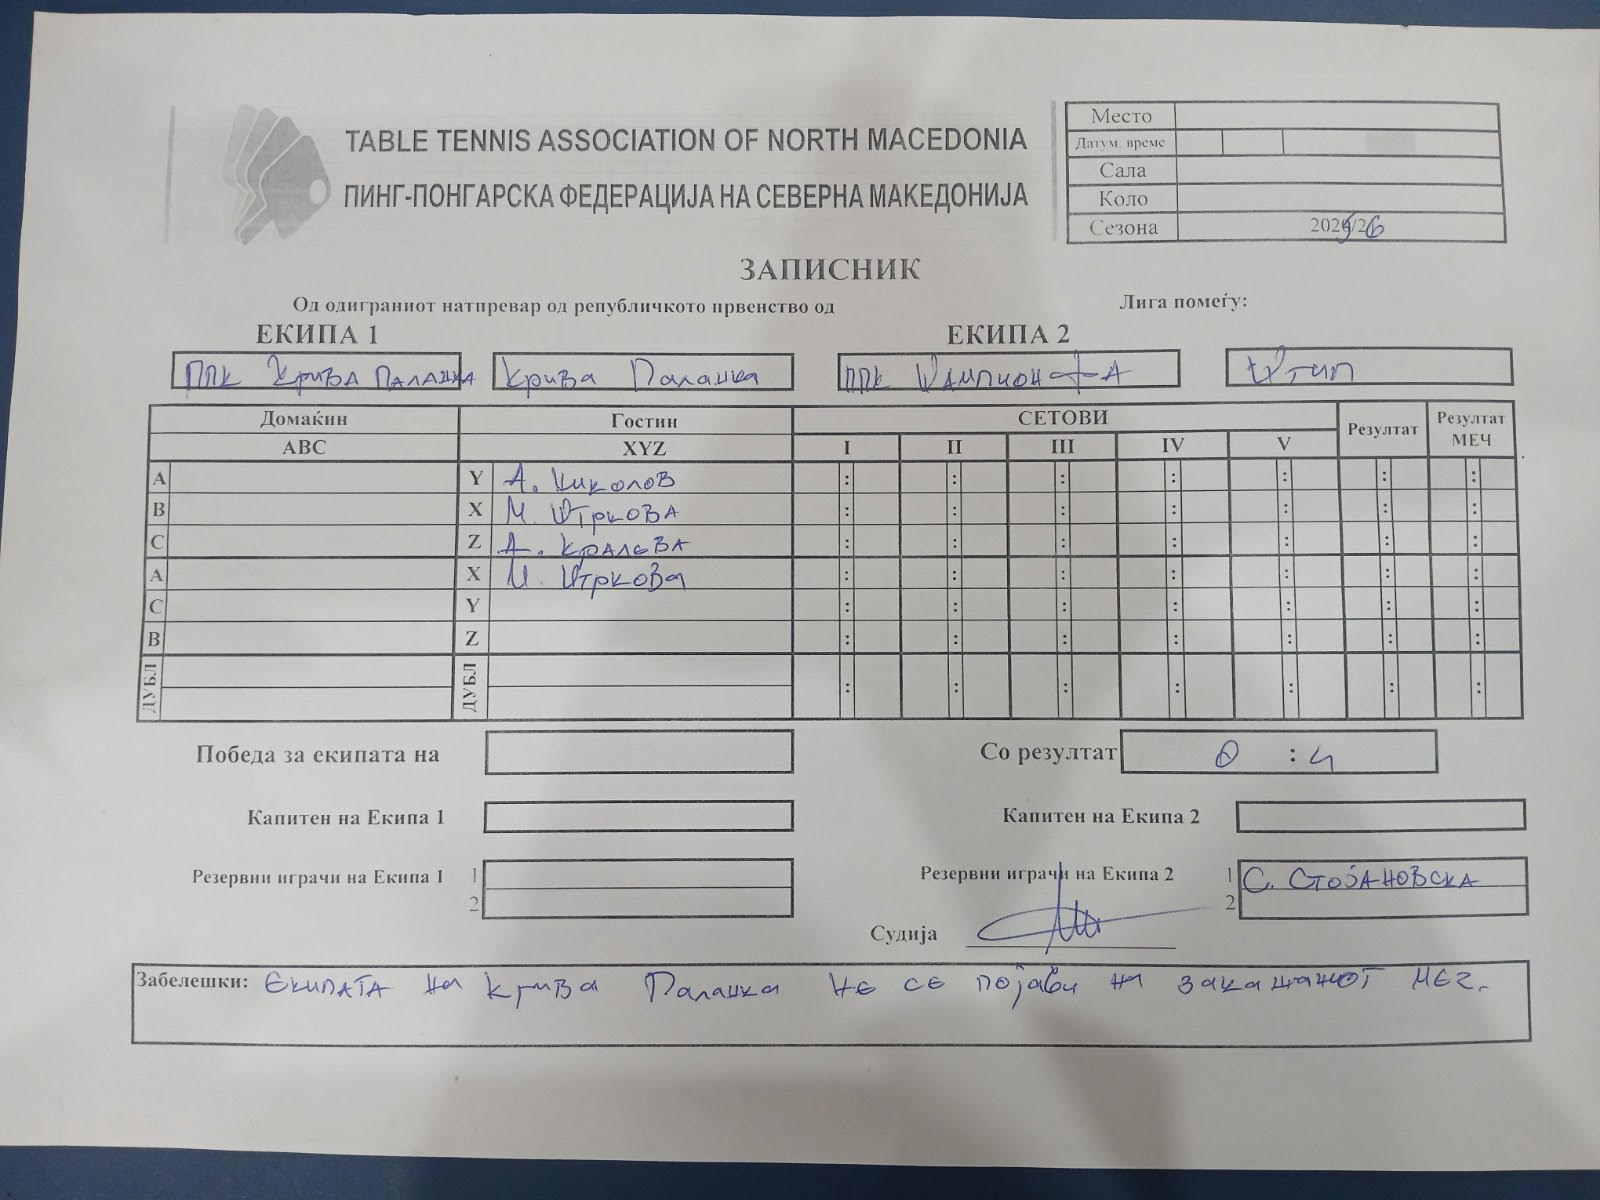 TABLE TENNIS ASSOCIATION OF NORTH MACEDONIA
ПИНГ-ПОНГАРСКА ФЕДЕРАЦИЈА НА СЕВЕРНА МАКЕДОНИЈА
Место
Датум. време
Сала
Коло
Сезона 2025/26
ЗАПИСНИК
Од одиграниот натпревар од републичкото првенство од Лига помеѓу:
ЕКИПА 1 ЕКИПА 2
ППК Крива Паланка Крива Паланка ППК Шампион-А Штип
Домаќин Гостин СЕТОВИ Резултат Резултат МЕЧ
ABC XYZ I II III IV V
A Y А. Николов : : : : : : :
B X М. Штркова : : : : : : :
C Z А. Кралева : : : : : : :
A X М. Штркова : : : : : : :
C Y : : : : : : :
B Z : : : : : : :
ДУБЛ ДУБЛ : : : : : : :
Победа за екипата на Со резултат 0 : 4
Капитен на Екипа 1 Капитен на Екипа 2
Резервни играчи на Екипа 1 1 Резервни играчи на Екипа 2 1 С. Стојановска
2 2
Судија
Забелешки: Екипата на Крива Паланка не се појави на закажаниот меч.